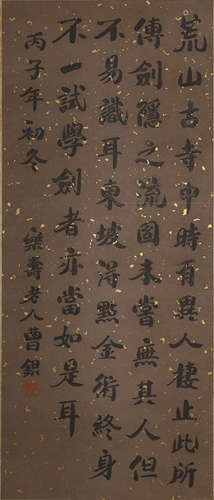 荒山古寺中時有異人棲止此所
傳劍隱之流固未嘗無其人但
不易識耳東坡得點金術終身
不一試學劍者亦當如是耳
丙子年初冬
樂壽老人曹錕